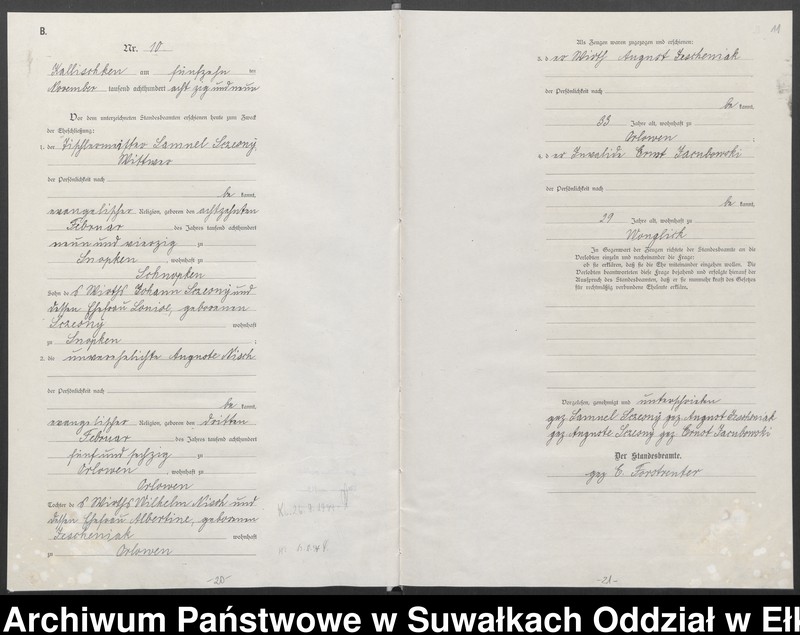 B.
Nr. 10
Kallischken am fünfzehn ten
November tausend achthundert acht zig und neun
Vor dem unterzeichneten Standesbeamten erschienen heute zum Zweck
der Eheschließung:
1. der Tischlermeister Samuel Sczesny
Wittwer
der Persönlichkeit nach
be kannt,
evangelischer Religion, geboren den achtzehnten
Februar des Jahres tausend achthundert
neun und vierzig zu
Snopken, wohnhaft zu
Schnopken
Sohn des Wirths Johann Sczesny und
dessen Ehefrau Louise, geborenen
Sczesny wohnhaft
zu Snopken ;
2. die unverehelichte Auguste Nisch
der Persönlichkeit nach
be kannt,
evangelischer Religion, geboren den dritten
Februar des Jahres tausend achthundert
fünf und sechzig zu
Orlowen, wohnhaft zu
Orlowen
Tochter des Wirths Wilhelm Nisch und
dessen Ehefrau Albertine, geborenen
Jescheniak wohnhaft
zu Orlowen
-20-
11
Als Zeugen waren zugezogen und erschienen:
3. der Wirth August Jescheniak
der Persönlichkeit nach
be kannt,
33 Jahre alt, wohnhaft zu
Orlowen ;
4. der Invalide Ernst Jacubowski
der Persönlichkeit nach
be kannt,
29 Jahre alt, wohnhaft zu
Monglick
In Gegenwart der Zeugen richtete der Standesbeamte an die
Verlobten einzeln und nacheinander die Frage:
ob sie erklären, daß sie die Ehe miteinander eingehen wollen. Die
Verlobten beantworteten diese Frage bejahend und erfolgte hierauf der
Ausspruch des Standesbeamten, daß er sie nunmehr kraft des Gesetzes
für rechtmäßig verbundene Eheleute erkläre.
Vorgelesen, genehmigt und unterschrieben
gez Samuel Sczesny gez August Jescheniak
gez Auguste Sczesny gez Ernst Jacubowski
Der Standesbeamte.
gez C. Forstreuter
-21-
Archiwum Państwowe w Suwałkach Oddział w Ełk